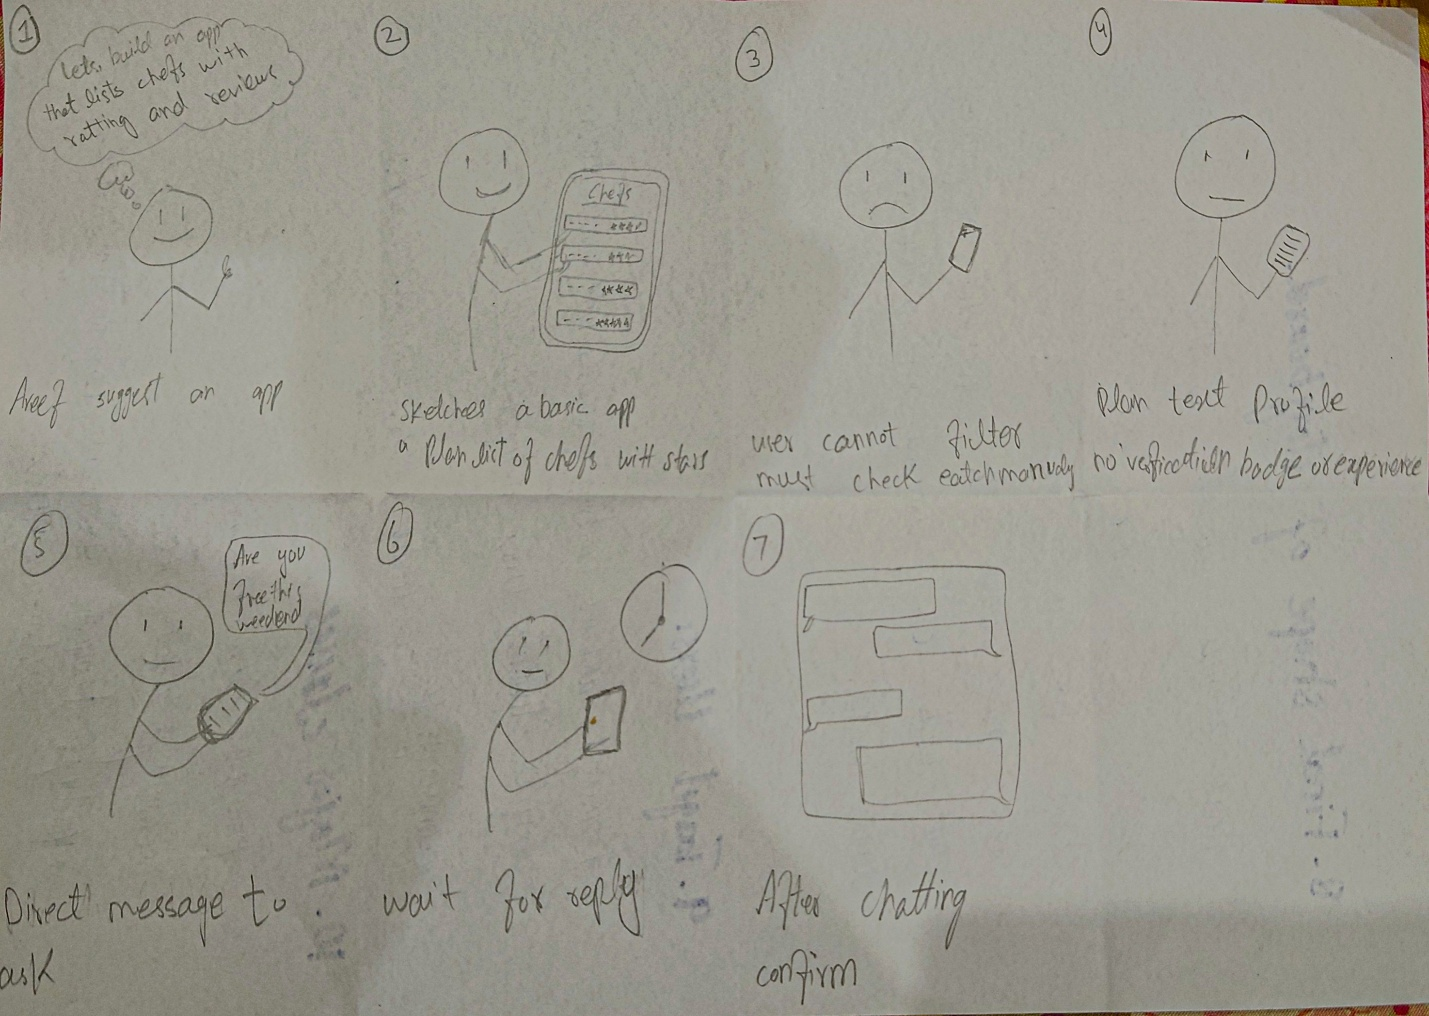 1
Lets, build an app
that lists chefs with
ratting and reviews
Areef suggest an app
2
Chefs
sketches a basic app
a Plan list of chefs witt stars
3
user cannot filter
must check eatch manualy
4
Plan text profile
no verification badge or experience
5
Are you
free this
weekend
Direct message to
ask
6
wait for reply
7
After chatting
confirm